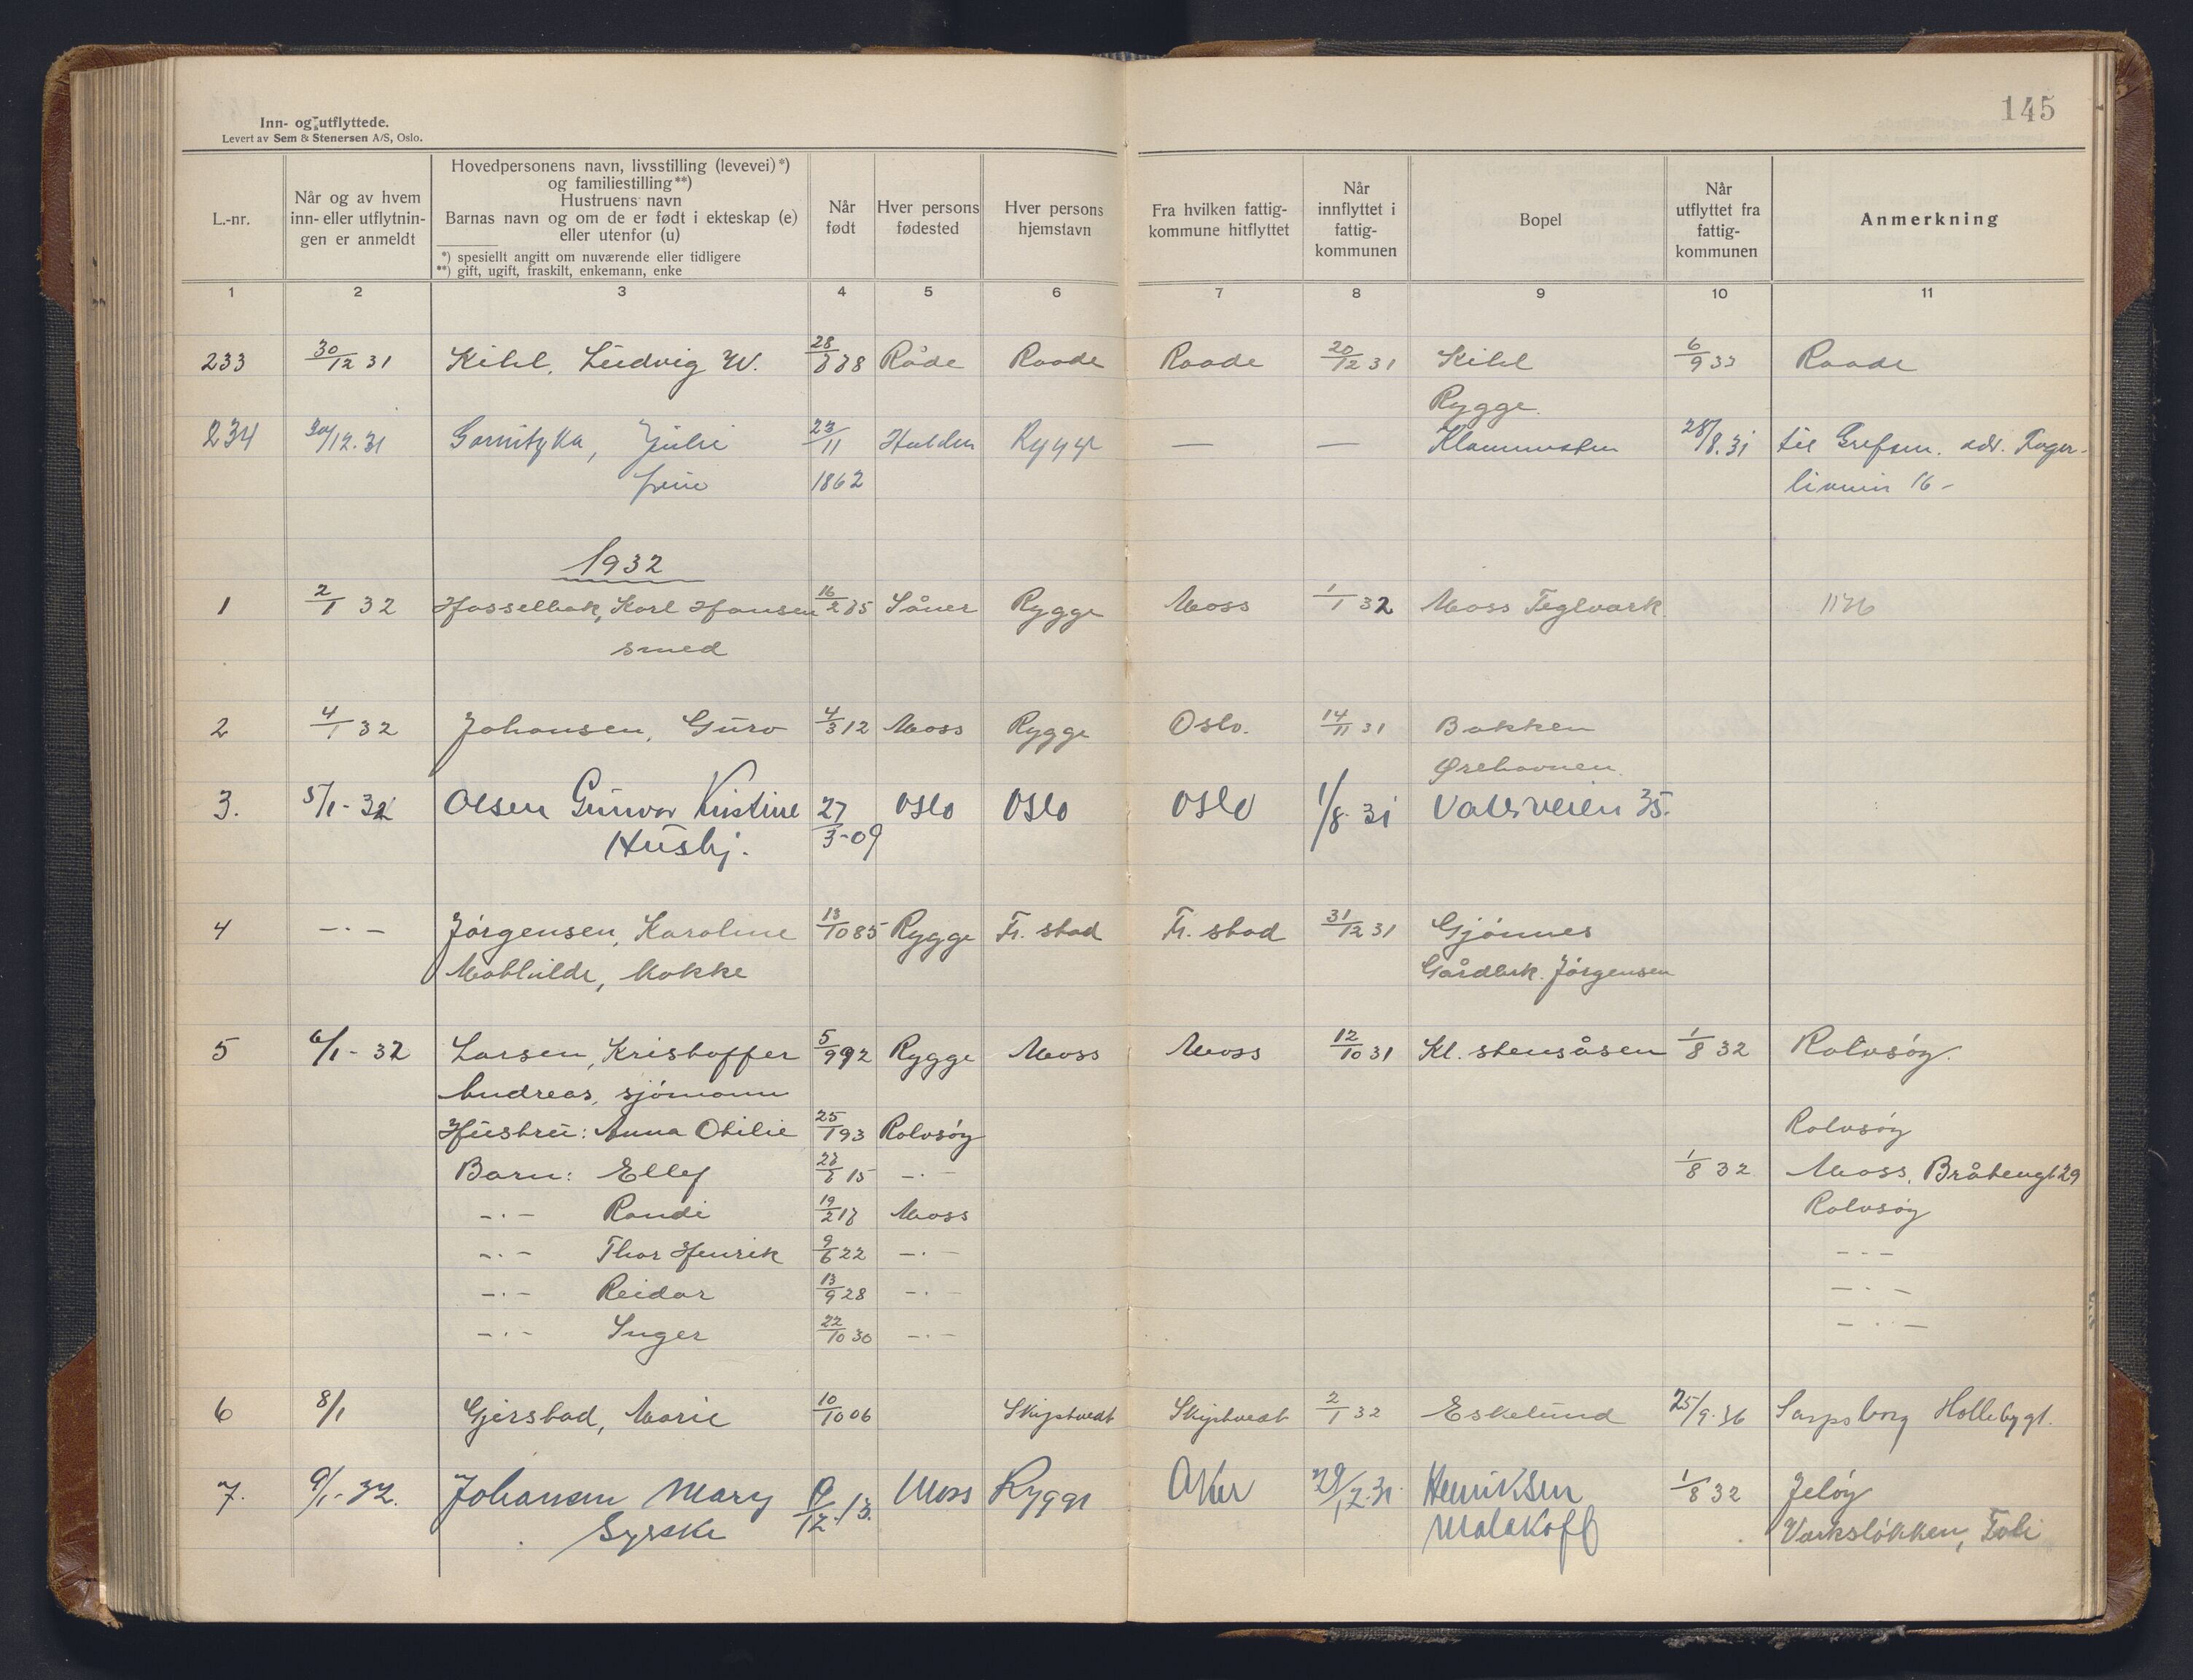 145
Inn- og utflyttede.
Levert av Sem & Stenersen A/S, Oslo.
L.-nr.
Når og av hvem
inn- eller utflytnin-
gen er anmeldt
Hovedpersonens navn, livsstilling (levevei)*)
og familiestilling**)
Hustruens navn
Barnas navn og om de er født i ekteskap (e)
eller utenfor (u)
*) spesielt angitt om nuværende eller tidligere
**) gift, ugift, fraskilt, enkemann, enke
Når
født
Hver persons
fødested
Hver persons
hjemstavn
Fra hvilken fattig-
kommune hitflyttet
Når
innflyttet i
fattig-
kommunen
Bopel
Når
utflyttet fra
fattig-
kommunen
Anmerkning
1 2 3 4 5 6 7 8 9 10 11
233 30/12 31 Kihl, Ludvig W. Råde Raade Raade 20/12 31 Kihl 6/9 33 Raade
Rygge
234 30/12.31 Julie 23/11 Halden Rygge — — 28/8.31 til Grefsen. adr. Fager-
1862 16 -
1932
1 2/1 32 Hasselbak, Karl Hansen Såner Rygge Moss 1/1 32 Moss Teglverk
smed
2 4/1 32 Johansen, Guro 4/3 12 Moss Rygge Oslo. 14/11 31 Bakken
Ørehavnen
3. 5/1 - 32 Olsen Gunvor Kristine 27 Oslo Oslo Oslo 1/8. 31 Valerveien 35.
Hushj. 3-09
4 -·- Jørgensen, Karoline 13/10 85 Rygge Fr. stad Fr. stad 31/12 31 Gjønnes
Mathilde, Kokke Gårdbrk. Jørgensen
5 6/1 - 32 Larsen, Kristoffer 5/9 92 Rygge Moss Moss 12/10 31 Kl. stensåsen 1/8 32 Rolvsøy.
Andreas, sjømann
Hustru: Anna Otilie 25/1 93 Rolvsøy Rolvsøy
Barn: Ellef -·- 1/8 32 Moss, Bråtengt 29
-·- Randi Moss Rolvsøy
-·- Thor Henrik 9/6 22 -·- -·-
-·- Reidar 13/9 28 -·- -·-
-·- Inger 22/10 30 -·- -·-
6 8/1 Gjerstad, Marie 10/10 06 Skiptvedt Skiptvedt 2/1 32 Eskelund 25/9.36 Sarpsborg
7. 9/1 - 32. Johansen Mary Moss Rygge Aker 29/12.31. Henriksen 1/8 32 Jeløy
Syerske Malakoff Varksløkken,